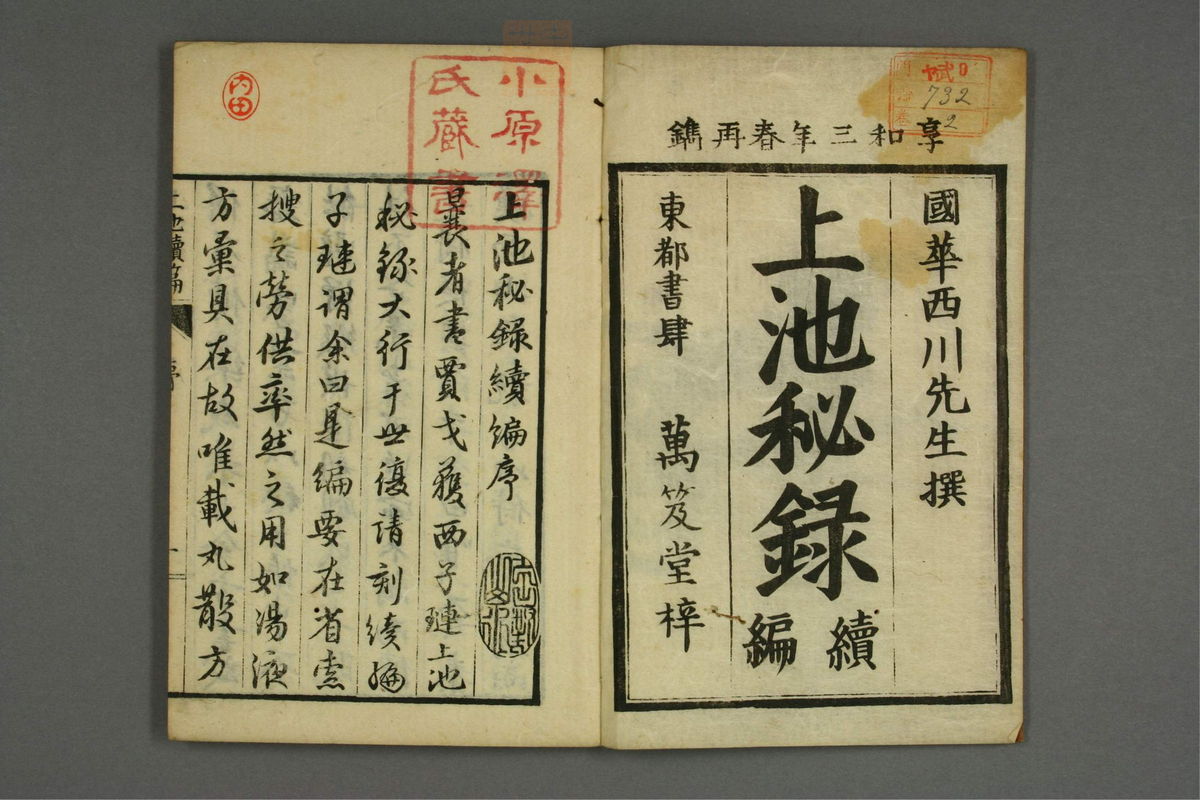 享和三年春再鐫
國華西川先生撰
上池秘録
續編
東都書肆 萬笈堂梓
732
2
小原澤
氏蔵書
内田
上池秘録續編序
曩者書賈弋獲西子璉上池
秘録大行于世復請刻續編
子璉謂余曰是編要在省索
搜之労供卒然之用如湯液
方彙具在故唯載丸散方
上池續篇
序
一